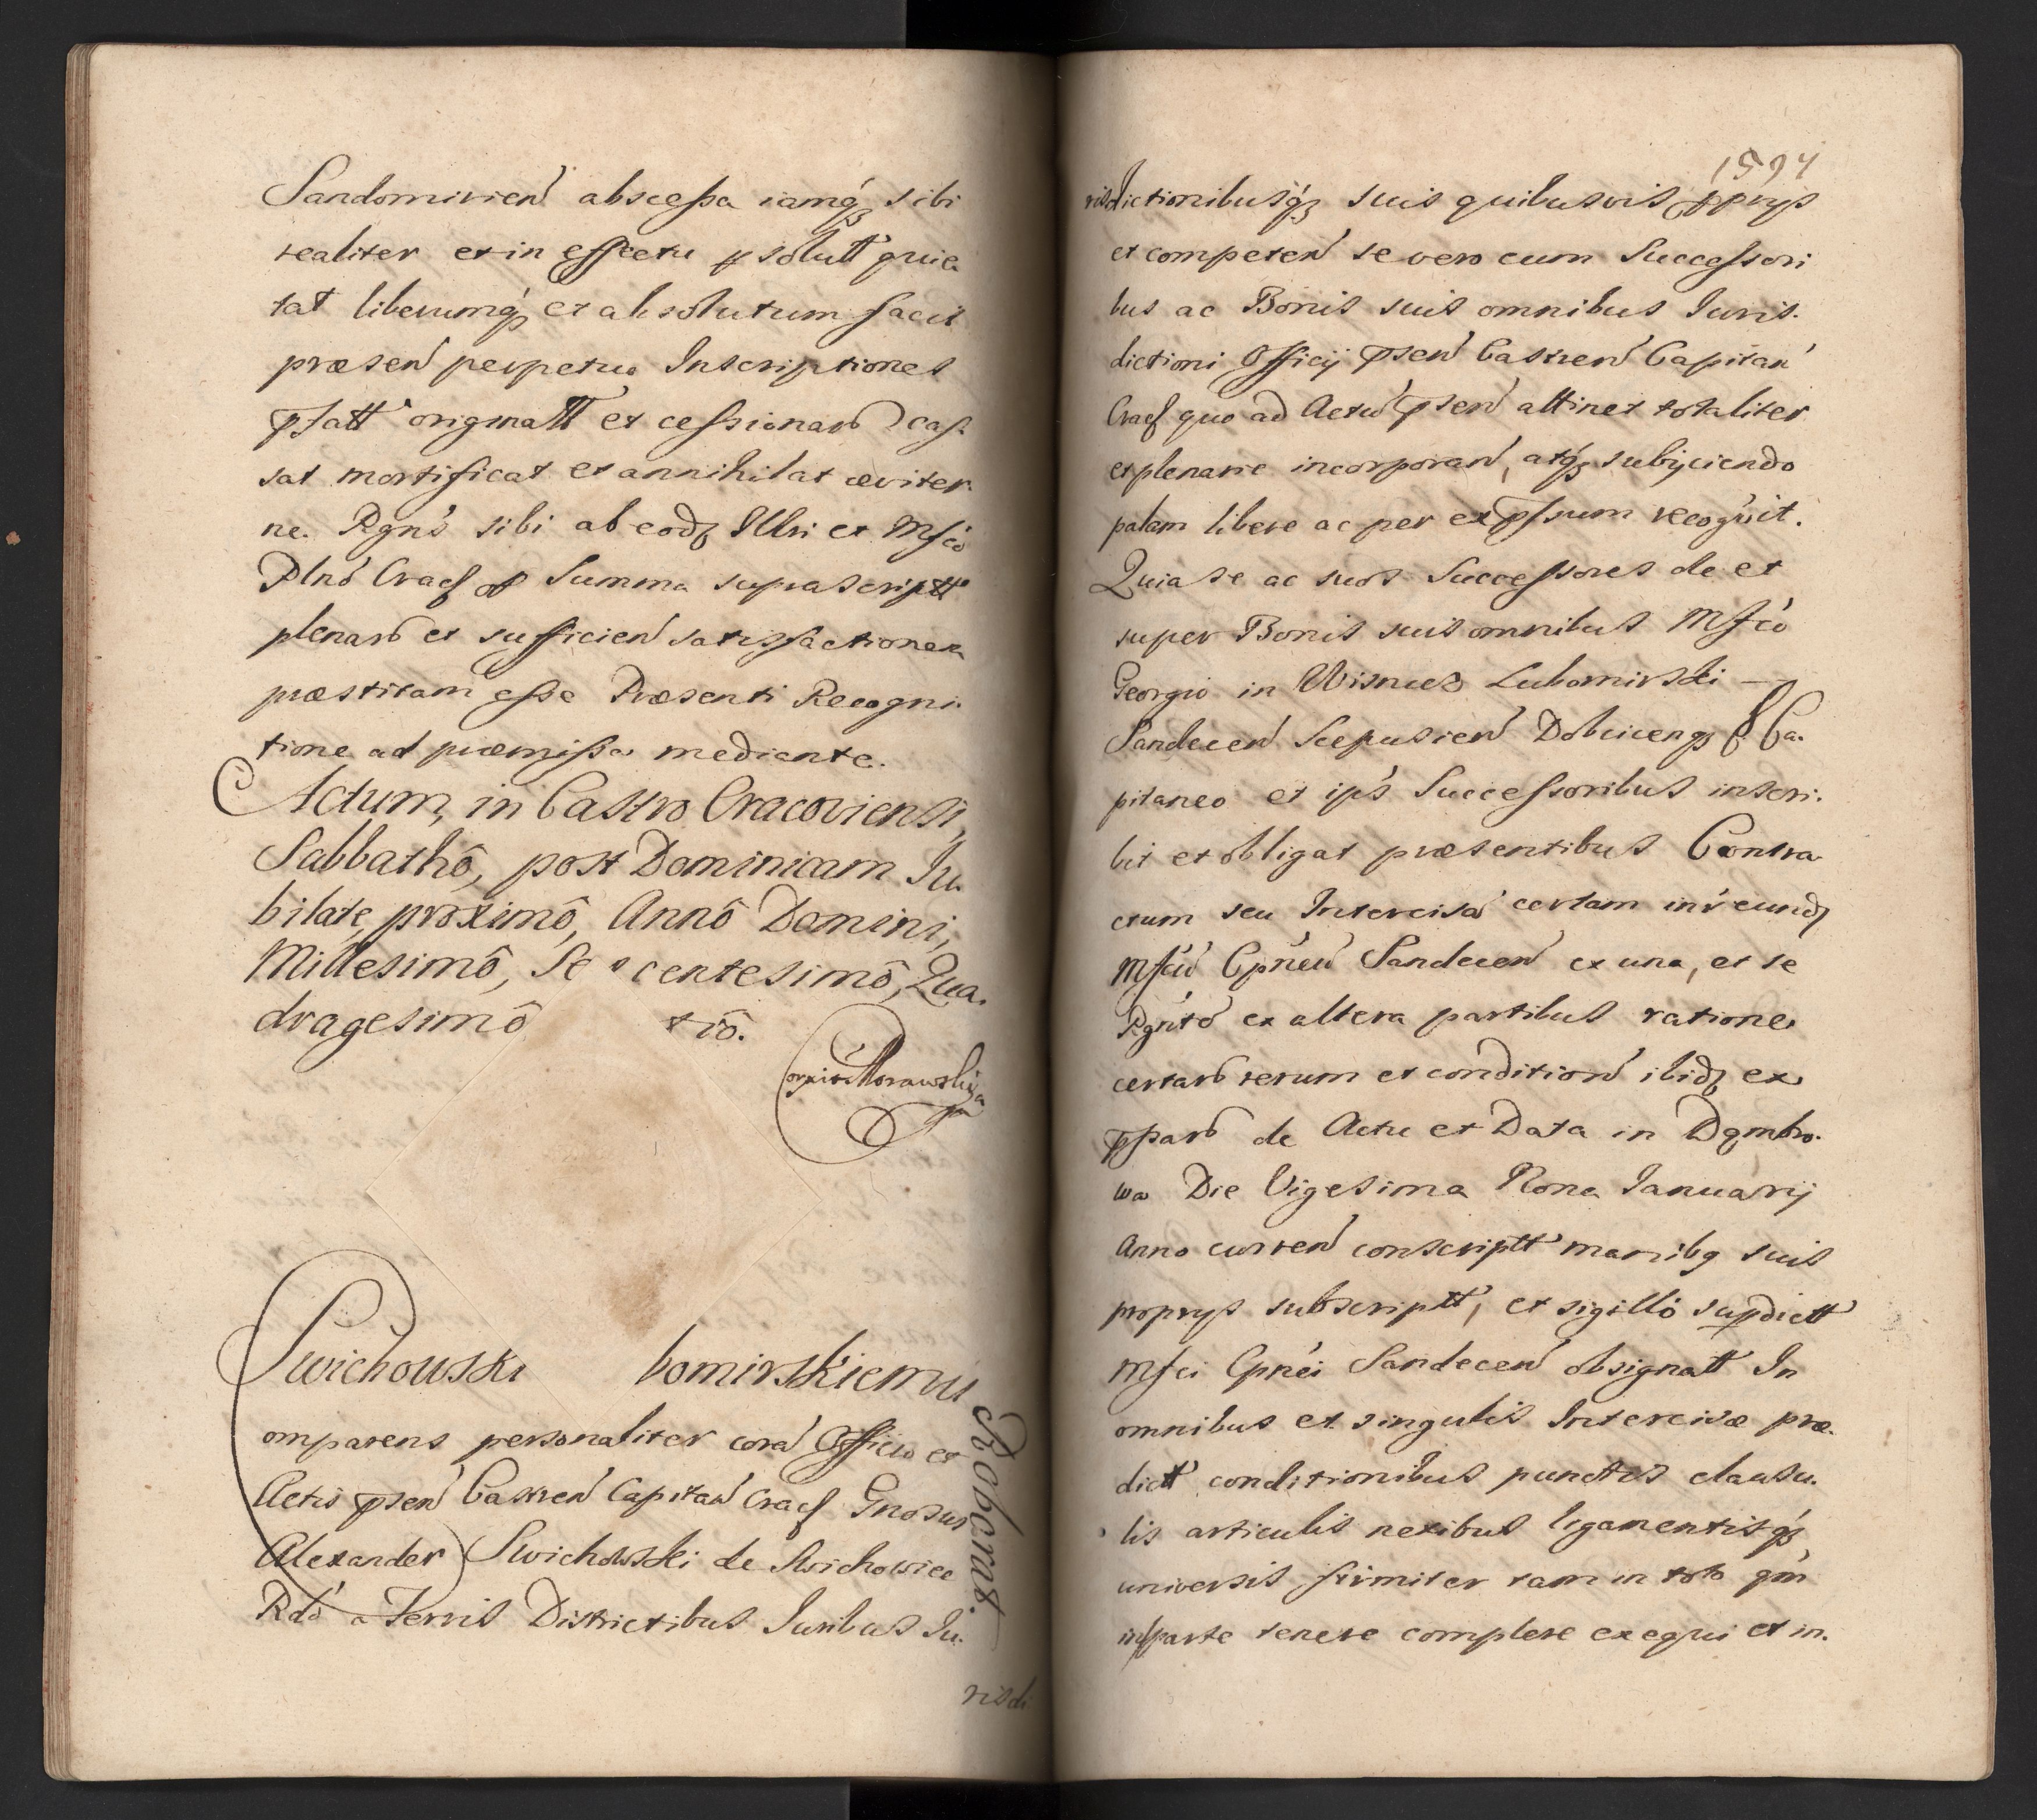 Sandomirien abscessa iamq́ꝫ sibi
realiter et in effectu ꝑsolutt quie
tat liberumq́ꝫ et absolutum facit
præsen perpetuo Inscriptiones
pfatt originatt et cessionar cas
sat mortificat et annihilat æviter
ne. Rgns sibi ab eodꝫ Illri et Mfco
Plno Cracꝭ Summa suprascriptt
plenar et sufficien satisfactionem
præstitam esse Præsenti Recogni
tione ad præmissa mediante.
Actum, in Castro Cracoviensi,
Sabbathô, post Dominicam Iu.
bilate, proximô, Annô Domini,
Millesimô, Se centesimô, Qua.
dragesimô tiô.
Morawski
Swichowski bomirskiemu
Roborat
omparens personaliter corá Officio et
Actis psen Castren Capitan Cracꝭ Gnosus
Alexander Swichowski de Swichowice
Rdó a Terris Districtibus Iuribus Iu.
risdi
1594
risdictionibusq́ꝫ suis quibusvis pprys
et competen se vero cum Successori
bus ac Bonis suis omnibus Iuris.
dictioni Officij psen Castren Capitan
Cracꝭ quo ad Actu psen attinet totaliter
et plenarie incorporan, atqꝫ subijciendo
palam libere ac per expssum recogńit.
Quia se ac suos Successores de et
super Bonis suis omnibus Mfcó
Georgio in Wisnicz Lubomirski —
Sandecen Scepusien Dobcicenqꝫ Ca.
pitaneo et ipś Successoribus inscri.
bit et obligat præsentibus Contra
ctum seu Intercisá certam intŕ eundꝫ
Mfcú Cpneú Sandecen ex una, et se
Rgntó ex altera partibus ratione
certar rerum et condition ibidꝫ ex
pssar de Actu et Data in Dąmbro.
wa Die Vigesima Nona Ianuarij
Anno curren conscriptt manibq suis
proprys subscriptt, et sigilló supdictt
Mfci Cpnéi Sandecen obsignatt In
omnibus et singulis Intercisæ præ.
dictt conditionibus punctis clausu.
lis articulis nexibus ligamentisq́ꝫ
universis firmiter tam in toto qm
in parte tenere complere exequi et in.